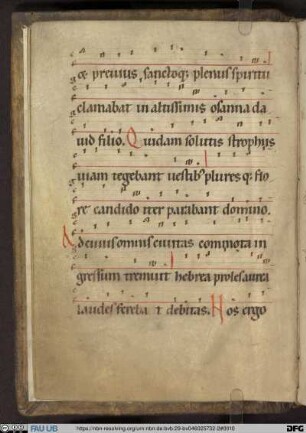 præuius sanctoq; plenus spiritu
clamabat in altissimis osanna da
uid filio. Quidam solutis strophiis
uiam tegebant uestib; plures q; flo
re candido iter parabant domino.
Ad cuius omnis ciuitas commota in
gressum tremuit hebrea proles aurea
laudes ferebat debitas. Nos ergo
FAU UB
https://nbn-resolving.org/urn:nbn:de:bvb:29-bv046325732-2#0010
DFG